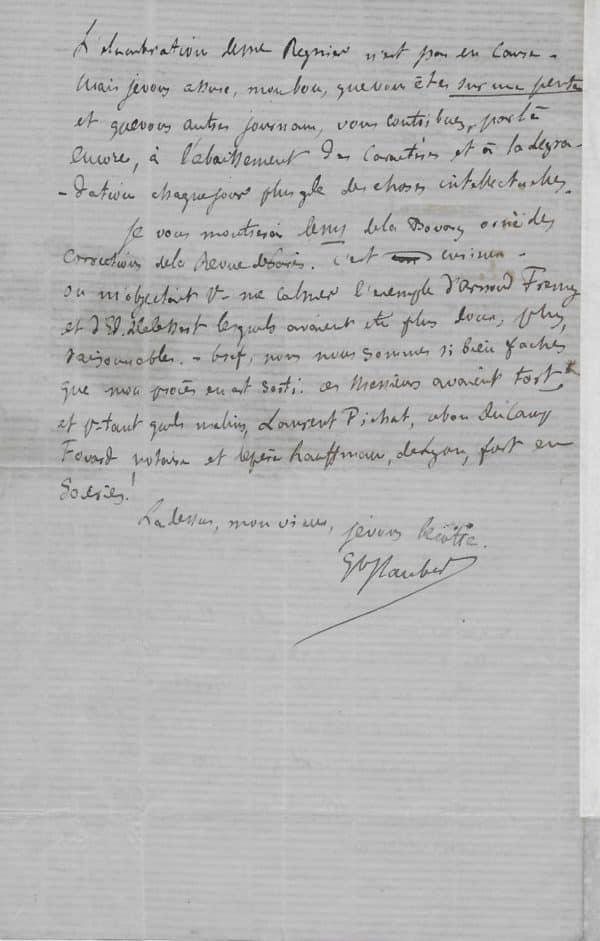 L'élucubration de Mme Regnier n'est pas en cause -
Mais je vous assure, mon bon, que vous êtes sur une pente
et que vous autres journaux, vous contribuez, par là
encore, à l'abaissement des caractères et à la dégra-
-dation chaque jour plus gde des choses intellectuelles.
Je vous montrerai le ms de la Bovary orné des
corrections de la Revue de Paris. C'est curieux -
on m'objectait pr me calmer l'exemple d'Arnould Fremy
et d'Ed. Delessert lesquels avaient été plus doux, plus
raisonnables. - bref, nous nous sommes si bien fâchés
que mon procès en est sorti. ces Messieurs avaient tort
et pourtant quels malins, Laurent Pichat, du Camp
Fovard notaire et le père Kauffmann, de Lyon, fort en
Soieries!
La dessus, mon vieux, je vous bécotte.
Gve Flaubert